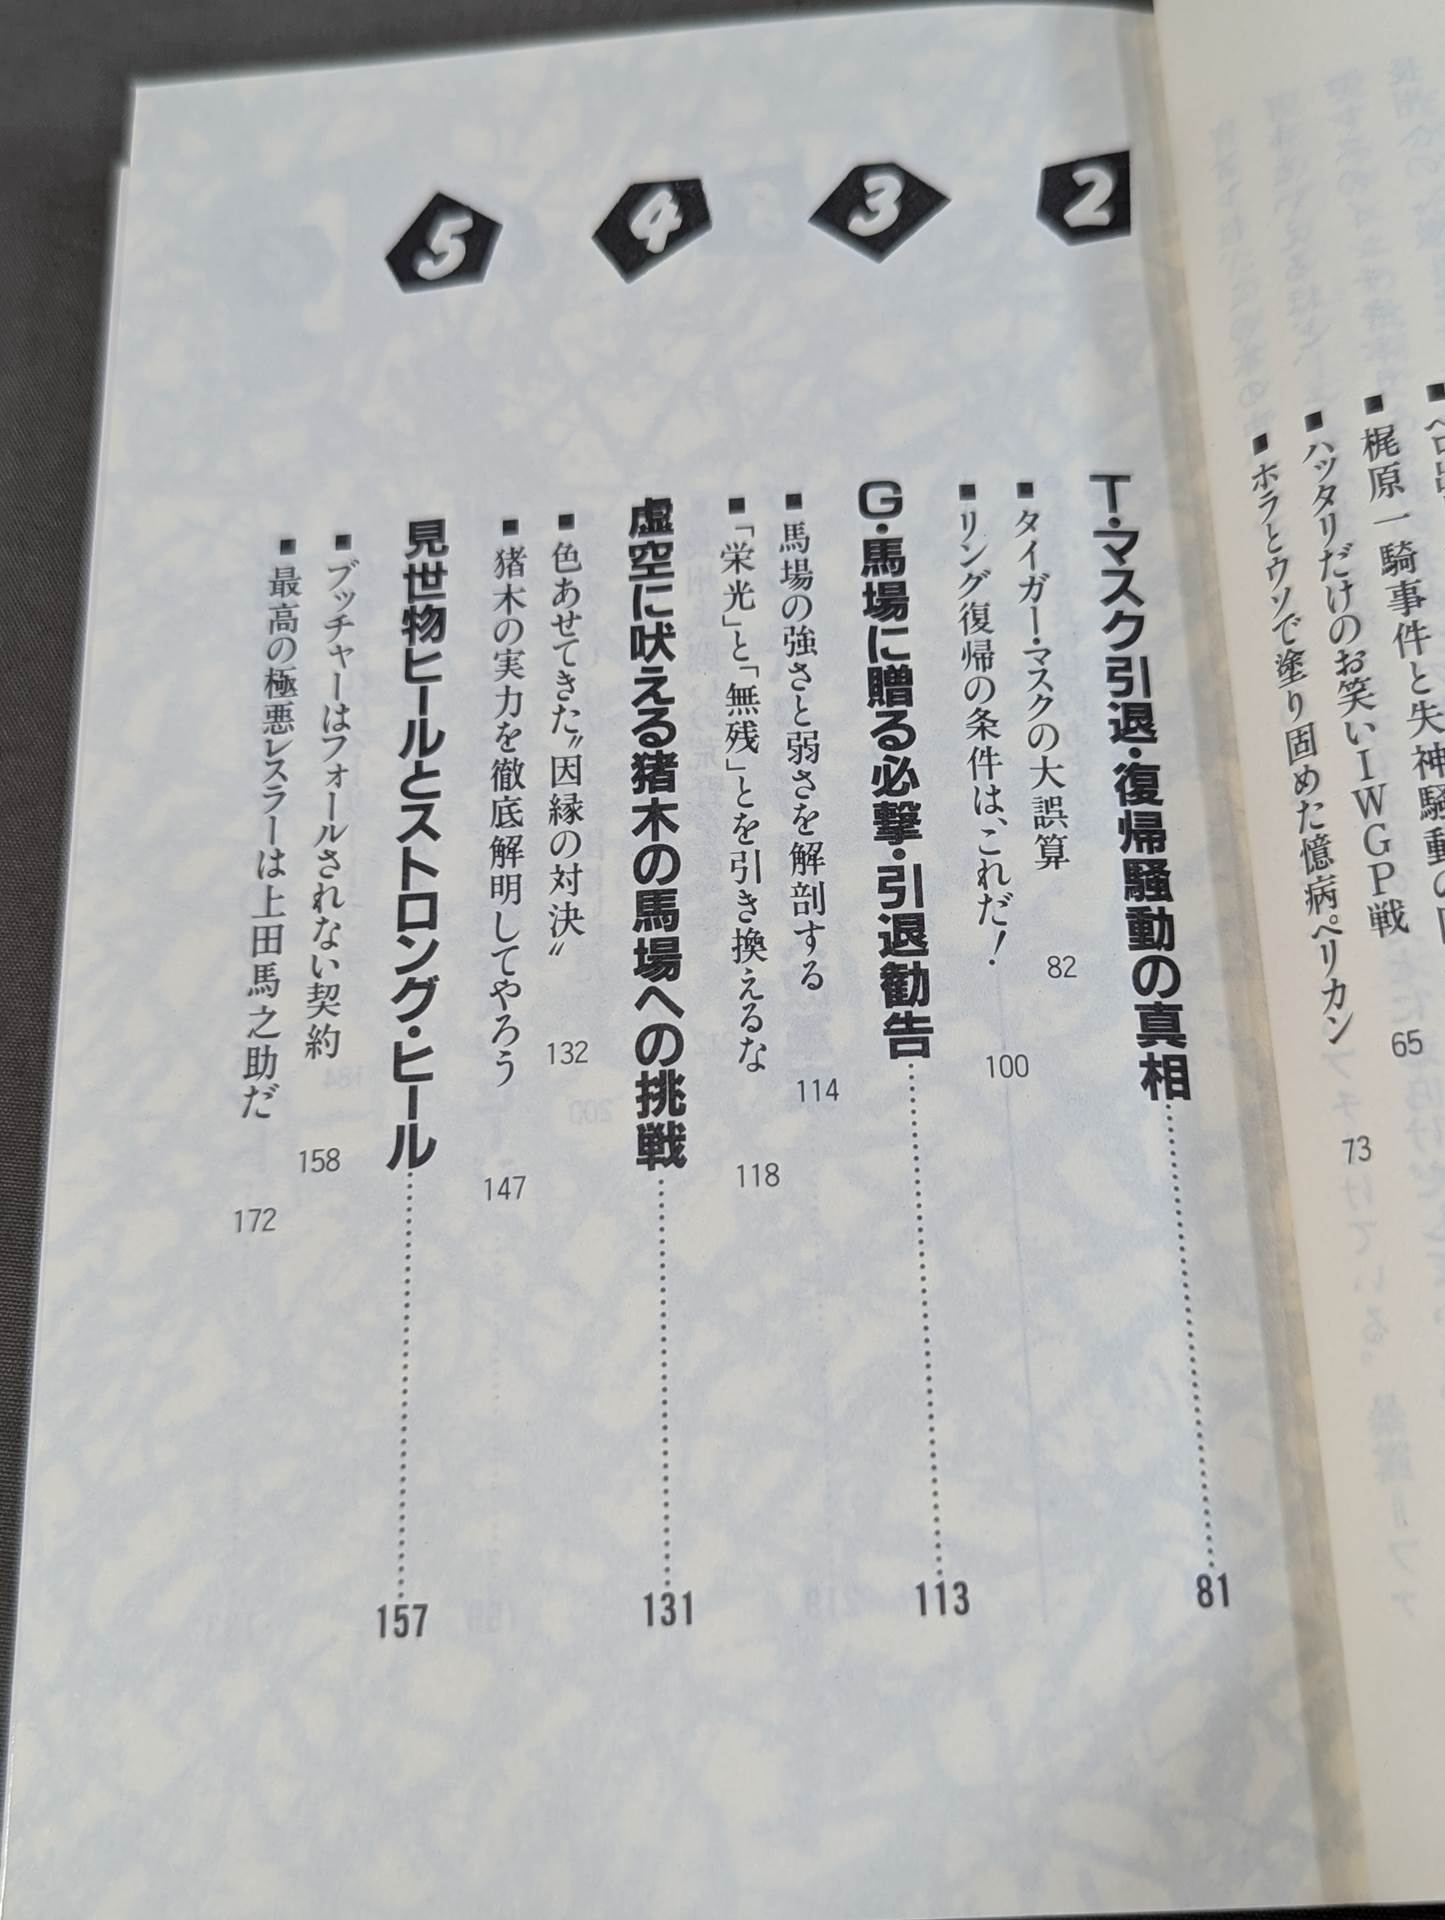 ■梶原一騎事件と失神騒動の
■ハッタリだけのお笑いIWGP戦
65
■ホラとウソで塗り固めた憶病ペリカン
73
2
T・マスク引退・復帰騒動の真相
81
■タイガー・マスクの大誤算
82
■リング復帰の条件は、これだ!
100
3
G・馬場に贈る必撃・引退勧告
113
■馬場の強さと弱さを解剖する
114
■「栄光」と「無残」とを引き換えるな
118
4
虚空に吠える猪木の馬場への挑戦
131
■色あせてきた〝因縁の対決〟
132
■猪木の実力を徹底解明してやろう
147
5
見世物ヒールとストロング・ヒール
157
■ブッチャーはフォールされない契約
158
■最高の極悪レスラーは上田馬之助だ
172